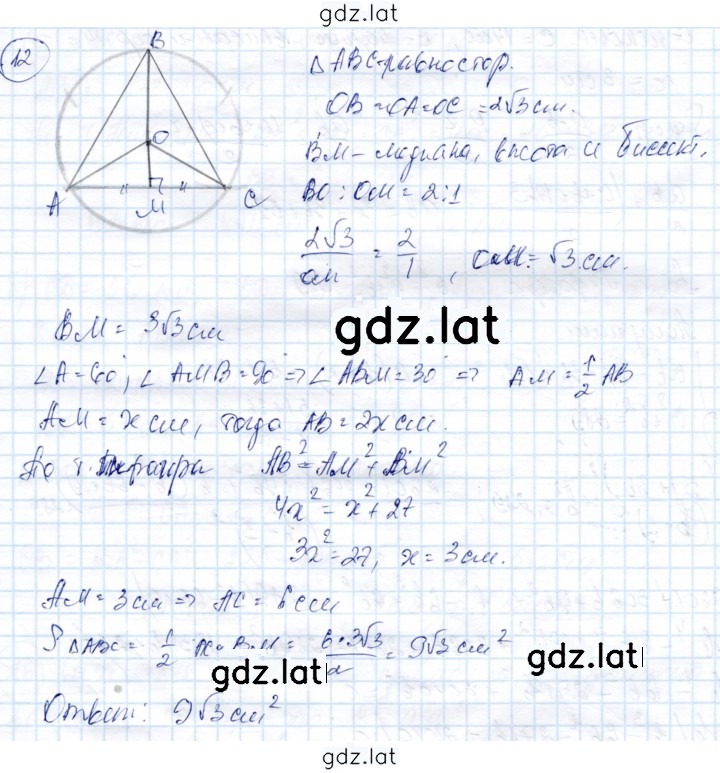 gdz.lat
12
B
O
A
M
C
△ABC-равностор.
OB = OA = OC = 2√3 см.
BM - медиана, высота и биссект.
BO : OM = 2:1
2√3/OM = 2/1, OM = √3 см.
BM = 3√3 см
gdz.lat
∠A = 60°, ∠AMB = 90° => ∠ABM = 30° => AM = 1/2 AB
AM = x см, тогда AB = 2x см.
По т. Пифагора AB² = AM² + BM²
4x² = x² + 27
3x² = 27, x = 3 см.
AM = 3 см => AC = 6 см
S△ABC = 1/2 AC · BM = 6·3√3/2 = 9√3 см²
gdz.lat
gdz.lat
Ответ: 9√3 см²
gdz.lat